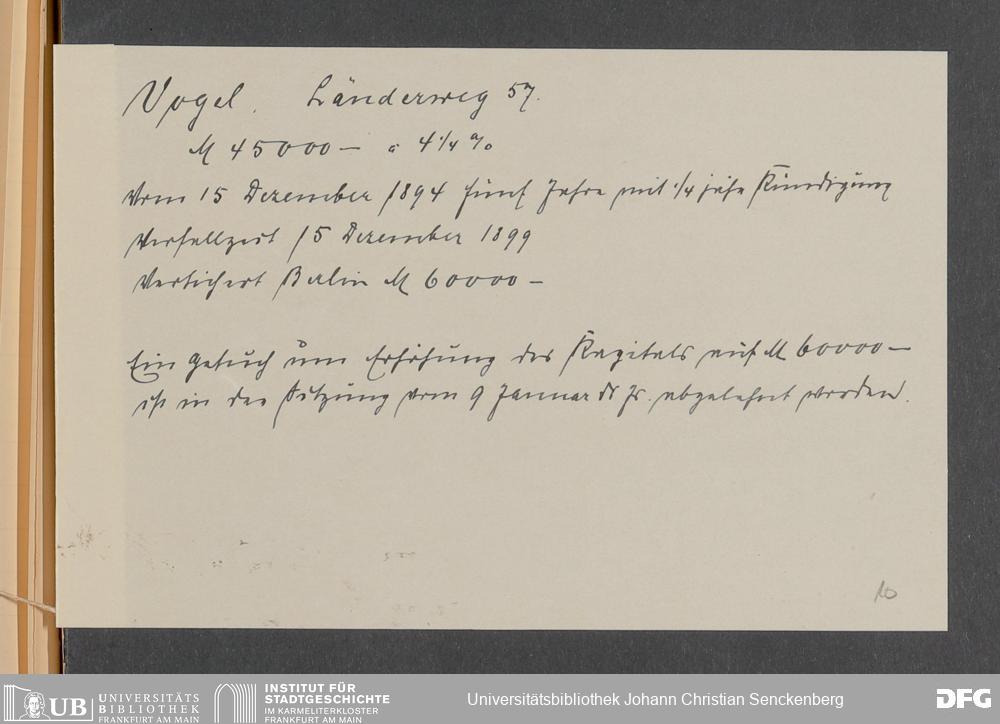 Vogel. Länderweg 57.
M 45000 – à 4 1/4 %
Vom 15 Dezember 1894 fünf Jahre mit 1/4 jähr Kündigung
Verfallzeit 15 Dezember 1899
Versichert Berlin M 60000 –
Ein Gesuch um Erhöhung des Kapitals auf M 60000 –
ist in der Sitzung vom 9 Januar ds Js. abgelehnt worden.
10
UB UNIVERSITÄTS
BIBLIOTHEK
FRANKFURT AM MAIN
INSTITUT FÜR
STADTGESCHICHTE
IM KARMELITERKLOSTER
FRANKFURT AM MAIN
Universitätsbibliothek Johann Christian Senckenberg
DFG